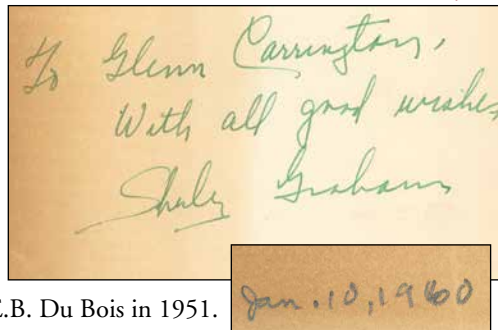 To Glenn Carrington,
With all good wishes
Shirley Graham
E.B. Du Bois in 1951.
Jan. 10, 1960